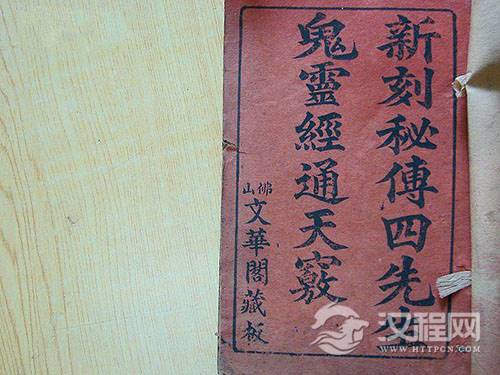 新刻秘傳四先生
鬼靈經通天竅
佛山
文華閣藏板
汉程网
WWW.HTTPCN.COM